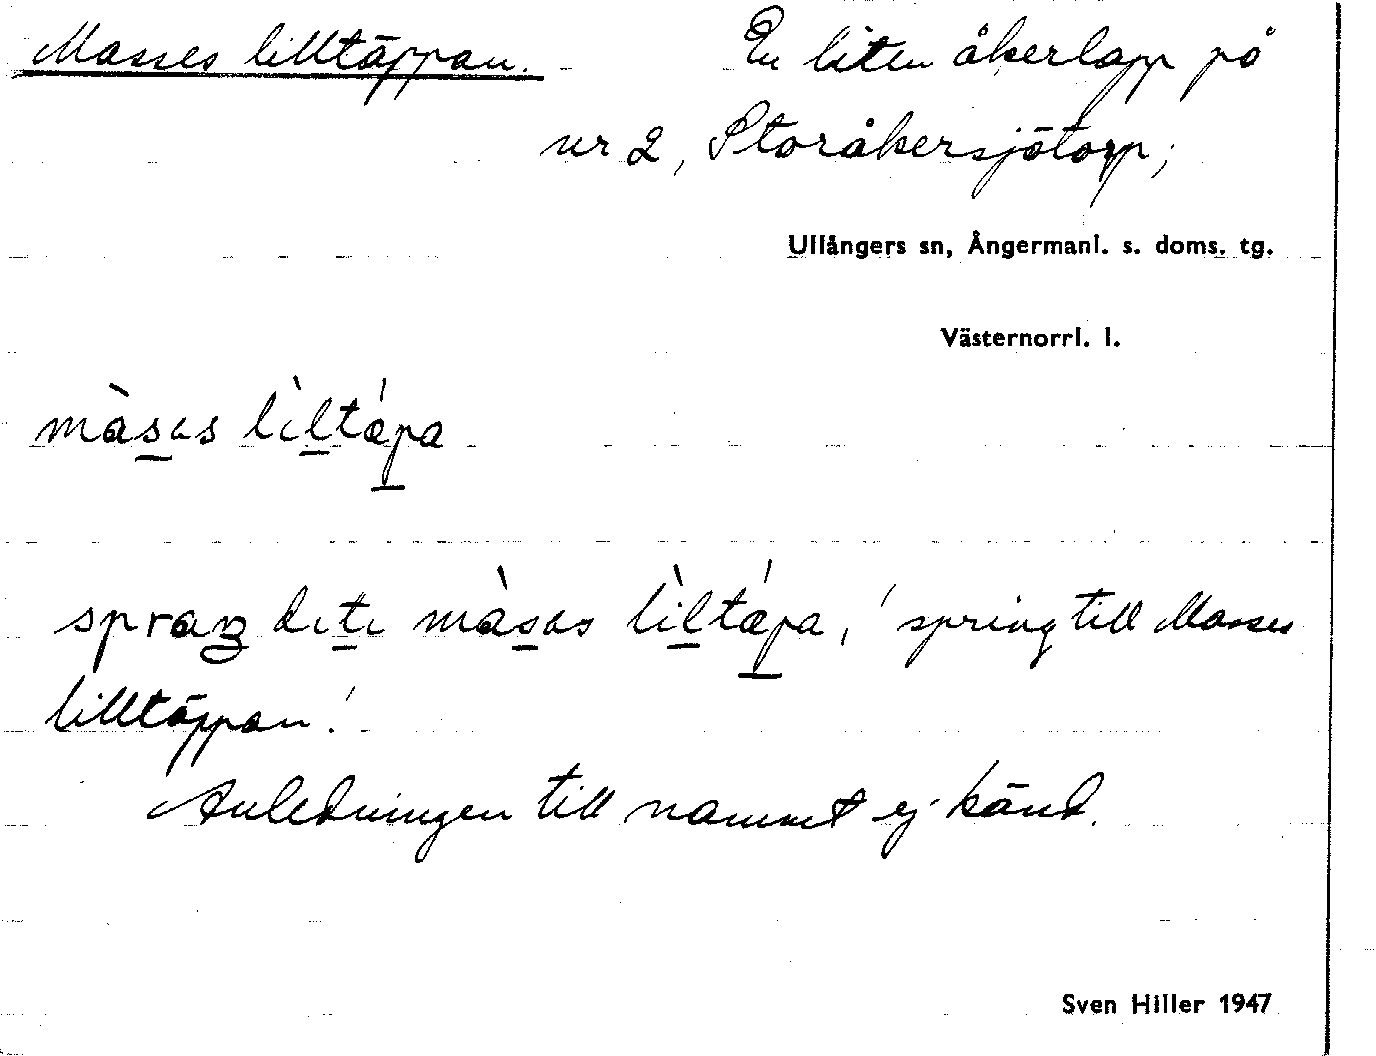 Masses lilltäppan. En liten åkerlapp på
nr 2, Storåkersjötorp;
Ullångers sn, Ångermanl. s. doms. tg.
Västernorrl. l.
màsas lìltápa
màsas lìltápa, spring till Masses
lilltäppan!
Anledningen till namnet ej känd.
Sven Hiller 1947